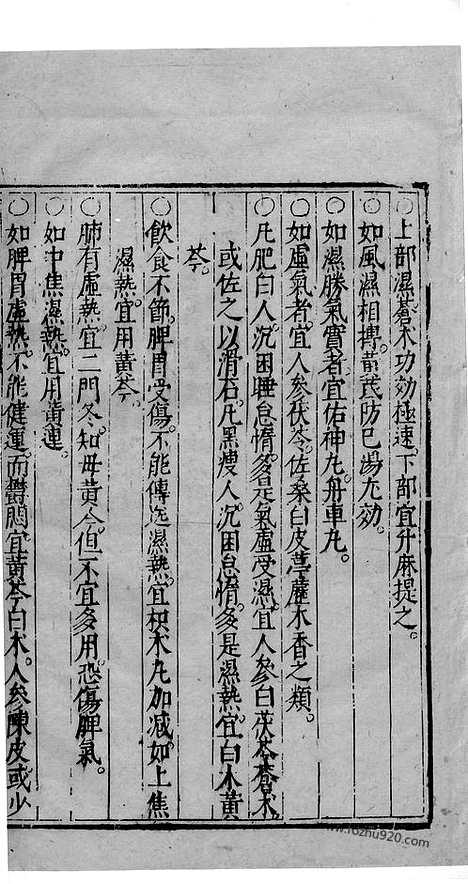 ○上部濕蒼术功効極速下部宜升麻提之。
○如風濕相搏黃茋防已湯尤効。
○如濕勝氣實者宜佑神丸舟車丸。
○如虛氣者宜人參茯苓佐桑白皮葶藶木香之類。
○凡肥白人沉困睡怠惰多是氣虛受濕宜人參白茯苓蒼术
或佐之以滑石凡黑瘦人沉困怠惰多是濕熱宜白术黃
芩。
○飲食不節脾胃受傷不能傳送濕熱宜枳术丸加减如上焦
濕熱宜用黃芩。
○肺有虛熱宜二門冬知母黃今但不宜多用恐傷脾氣。
○如中焦濕熱宜用黃連。
○如脾胃虛熱不能健運而鬱悶宜黃芩白术人參陳皮或少
www.f6zhu920.com